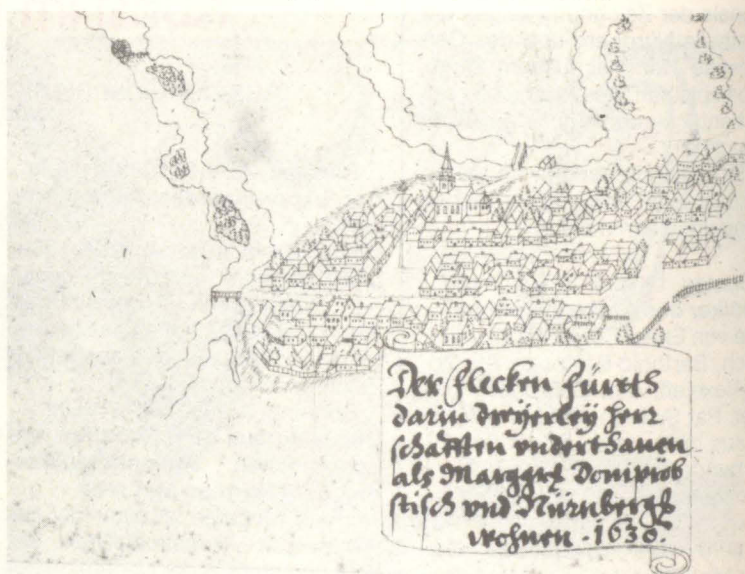 Der Flecken Fürtth
darin dreÿerleÿ herr
schafften vnderthanen
als Marggrß Domprob
stisch vnd Nürnbergß
wohnen - 1630.